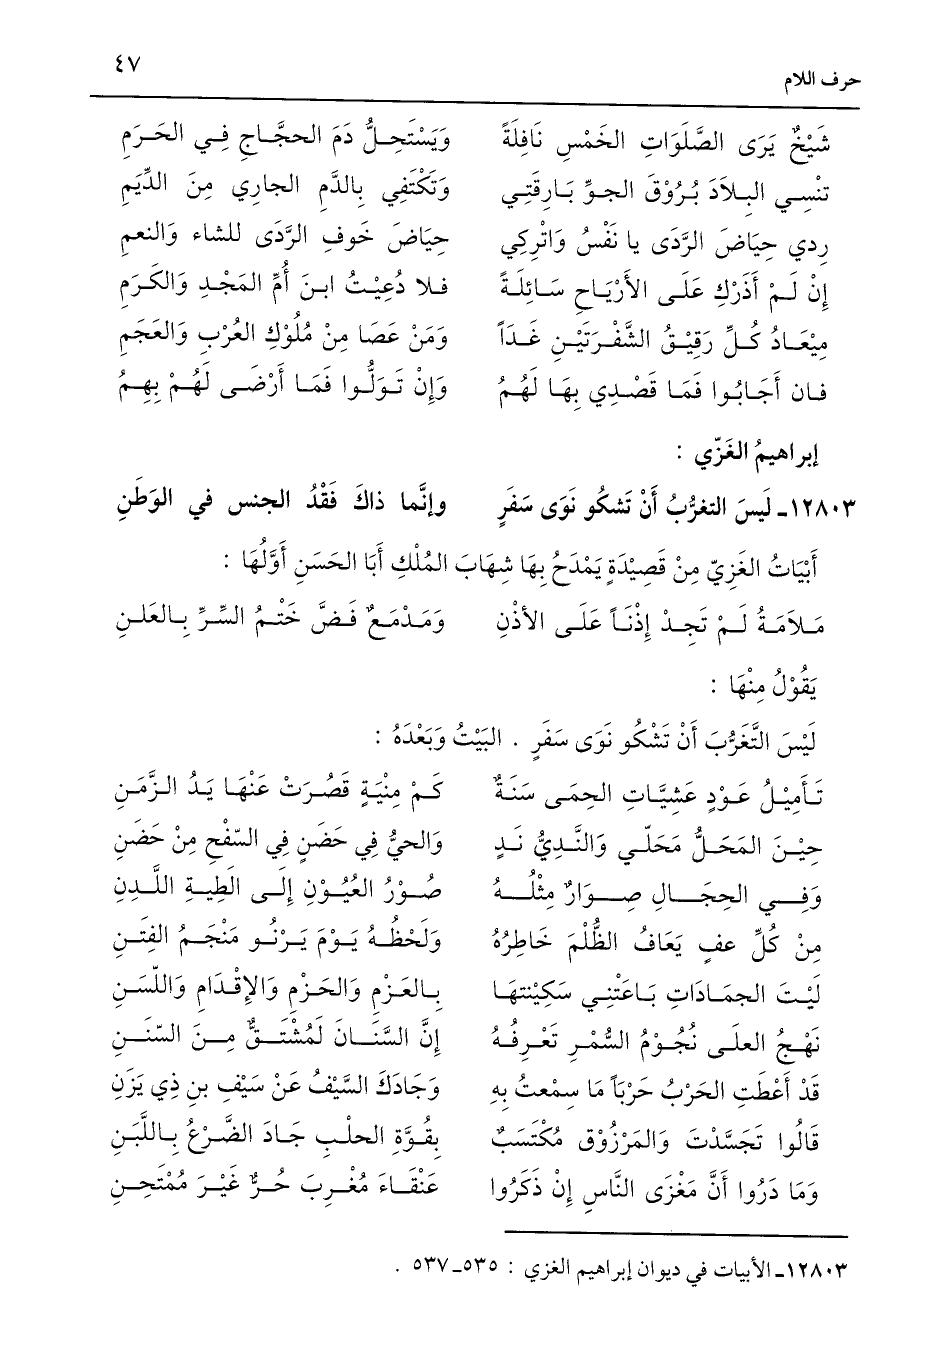 حرف اللام ٤٧
شَيْخٌ يَرَى الصَّلَوَاتِ الخَمْسِ نَافِلَةً وَيَسْتَحِلُّ دَمَ الحجَّاجِ فِي الحَرَمِ
تنْسِي البلاَدَ بُرُوْقَ الجوِّ بَارِقَتِي وَتَكْتَفِي بِالدَّمِ الجارِي مِنَ الدِّيَمِ
رِدي حِيَاضَ الرَّدَى يا نَفْسُ وَاتْرِكِي حِيَاضَ خَوفِ الرَّدَى للشاء وَالنعمِ
إنْ لَمْ أَذَرْكِ عَلَى الأَرْيَاحِ سَائِلَةً فلا دُعِيْتُ ابنَ أُمِّ المَجْدِ وَالكَرَمِ
مِيْعَادُ كُلِّ رَقِيْقُ الشَّفْرَتَيْنِ غَدَاً وَمَنْ عَصَا مِنْ مُلُوْكِ العُرْبِ وَالعَجَمِ
فان أَجَابُوا فَمَا قَصْدِي بِهَا لَهُمُ وَإِنْ تَوَلُّوا فَمَا أَرْضَى لَهُمْ بِهِمُ
إبراهيمُ الغَزّي :
١٢٨٠٣ـ لَيسَ التغرُّبُ أنْ تَشكُو نَوَى سَفَرٍ وإنَّما ذاكَ فَقْدُ الجنس في الوَطَنِ
أَبْيَاتُ الغَزِيّ مِنْ قَصِيْدَةٍ يَمْدَحُ بِهَا شِهَابَ المُلْكِ أَبَا الحَسَنِ أَوَّلُهَا :
مَلاَمَةُ لَمْ تَجِدْ إِذْنَاً عَلَى الأذْنِ وَمَدْمَعٌ فَضَّ خَتْمُ السِّرِّ بِالعَلَنِ
يَقُوْلُ مِنْهَا :
لَيْسَ التَّغَرُّبَ أَنْ تَشْكُو نَوَى سَفَرٍ . البَيْتُ وَبَعْدَهُ :
تَأمِيْلُ عَوْدِ عَشِيَّاتِ الحِمَى سَنَةٌ كَمْ مِنْيَةٍ قَصُرَتْ عَنْهَا يَدُ الزَّمَنِ
حِيْنَ المَحَلُّ مَحَلّي وَالنَّدِيُّ نَدٍ وَالحيُّ فِي حَضَنٍ فِي السّفْحِ مِنْ حَضَنِ
وَفِي الحِجَالِ صِوَارٌ مثْلُهُ صُوْرُ العُيُوْنِ إِلَى الَطِيةِ اللَّدِنِ
مِنْ كُلِّ عفٍ يَعَافُ الظُّلْمَ خَاطِرُهُ وَلَحظُهُ يَوْمَ يَرْنُو مَنْجَمُ الفِتَنِ
لَيْتَ الجمَادَاتِ بَاعَتْنِي سَكِيْنتهَا بِالعَزْمِ وَالحَزْمِ وَالإِقْدَامِ وَاللّسَنِ
نَهْجُ العلَى نُجُوْمُ السُّمْرِ تَعْرِفُهُ إِنَّ السَّنَانَ لَمُشْتَقٌّ مِنَ السّنَنِ
قَدْ أَعْطَتِ الحَرْبُ حَرْبَاً مَا سمْعتُ بِهِ وَجَادَكَ السَّيْفُ عَنْ سَيْفِ بن ذِي يَزَنِ
قَالُوا تَجَسَّدْتَ وَالمَرْزُوْقِ مُكْتَسَبٌ بِقُوَّةِ الحلبِ جَادَ الضَّرْعُ بِاللَّبَنِ
وَمَا دَرُوا أَنَّ مَغْزَى النَّاسِ إِنْ ذَكَرُوا عَنْقَاءَ مُغْرِبَ حُرٌّ غَيْرَ مُمْتَحِنِ
١٢٨٠٣ـ الأبيات في ديوان إبراهيم الغزي : ٥٣٥ـ٥٣٧ .